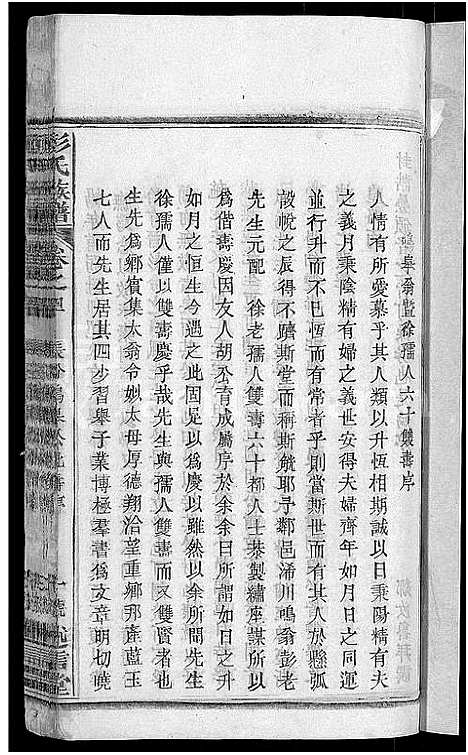 鳴皋翁暨徐孺人六十雙壽序
人情有所愛慕乎其人類以升恆相期誠以日秉陽精有夫
之義月秉陰精有婦之義世安得夫婦齊年如月日之同運
並行升而不已恆而有常者乎則當斯世而有其人於懸弧
設帨之辰得不躋斯堂而稱斯觥耶予鄰邑浠川鳴翁彭老
先生元配 徐老孺人雙壽六十都人士恭製繡座謀所以
為偕壽慶因友人胡丕育成屬序於余余曰所謂如日之升
如月之恒生今遇之此固足以為慶以雖然以余所聞先生
徐孺人僅以雙壽慶乎哉先生與孺人雙壽而又雙賢者也
生先為鄉賓集太翁令姒太母厚德翔洽望重鄉邦產藍玉
七人而先生居其四少習舉子業博極羣書為文章明切曉
彭氏族譜 卷之四